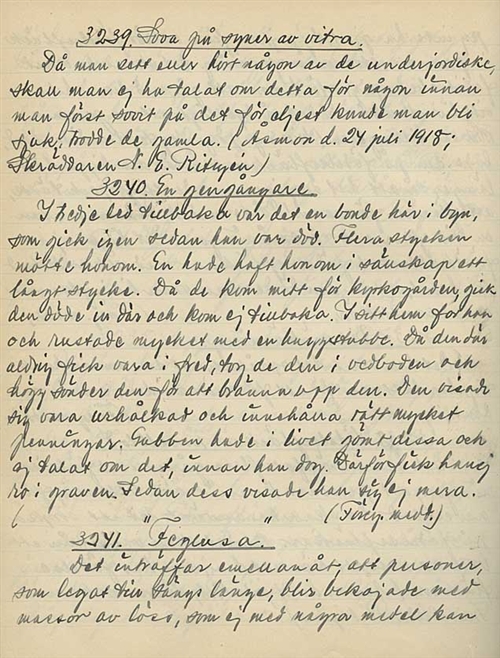 3239. Sova på syner av vitra.
Då man sett eller hört någon av de underjordiske,
skall man ej ha talat om detta för någon innan
man först sovit på det för aljest kunde man bli
sjuk, trodde de gamla. (Asmon d. 24 juli 1918;
Skräddaren N. E.
3240. En gengångare.
I tredje led tillbaka var det en bonde här i byn,
som gick igen sedan han var död. Flera stycken
mötte honom. En hade haft honom i sällskap ett
långt stycke. Då de kom mitt för kyrkogården, gick
den döde in där och kom ej tillbaka. I sitt hem for han
och rustade mycket med en huggstubbe. Då den där
aldrig fick vara i fred, tog de den i vedboden och
högg sönder den för att bränna upp den. Den visade
sig vara urhålkad och innehålla rätt mycket
penningar. Gubben hade i livet gömt dessa och
ej talat om det, innan han dog. Därför fick han ej
ro i graven. Sedan dess visade han sig ej mera.
( (Föreg. medd.)
3241. "Feglusa."
Det inträffar emellanåt, att personer,
som legat till sängs länge, blir bekajade med
massor av löss, som ej med några medel kan